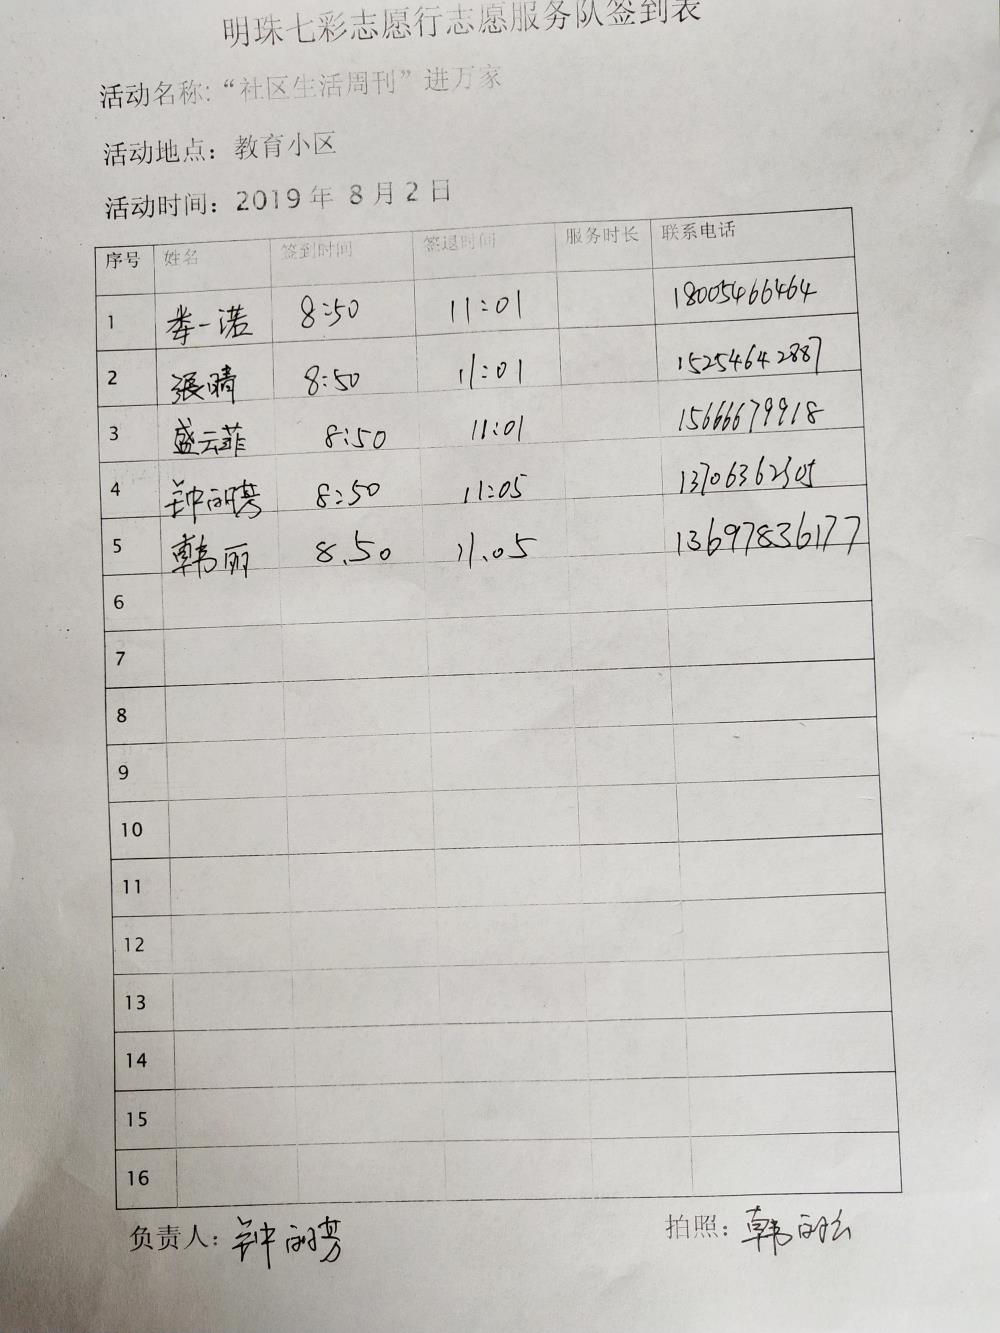 明珠七彩志愿行志愿服务队签到表
活动名称:“社区生活周刊”进万家
活动地点：教育小区
活动时间：2019年 8月2日
序号 姓名 签到时间 签退时间 服务时长 联系电话
1 娄一诺 8:50 11:01 18005466464
2 張晴 8:50 11:01 15254642887
3 盛云菲 8:50 11:01 15666679918
4 钟 8:50 11:05
5 韩丽 8.50 11.05 13697836177
6
7
8
9
10
11
12
13
14
15
16
负责人：钟
拍照：韩